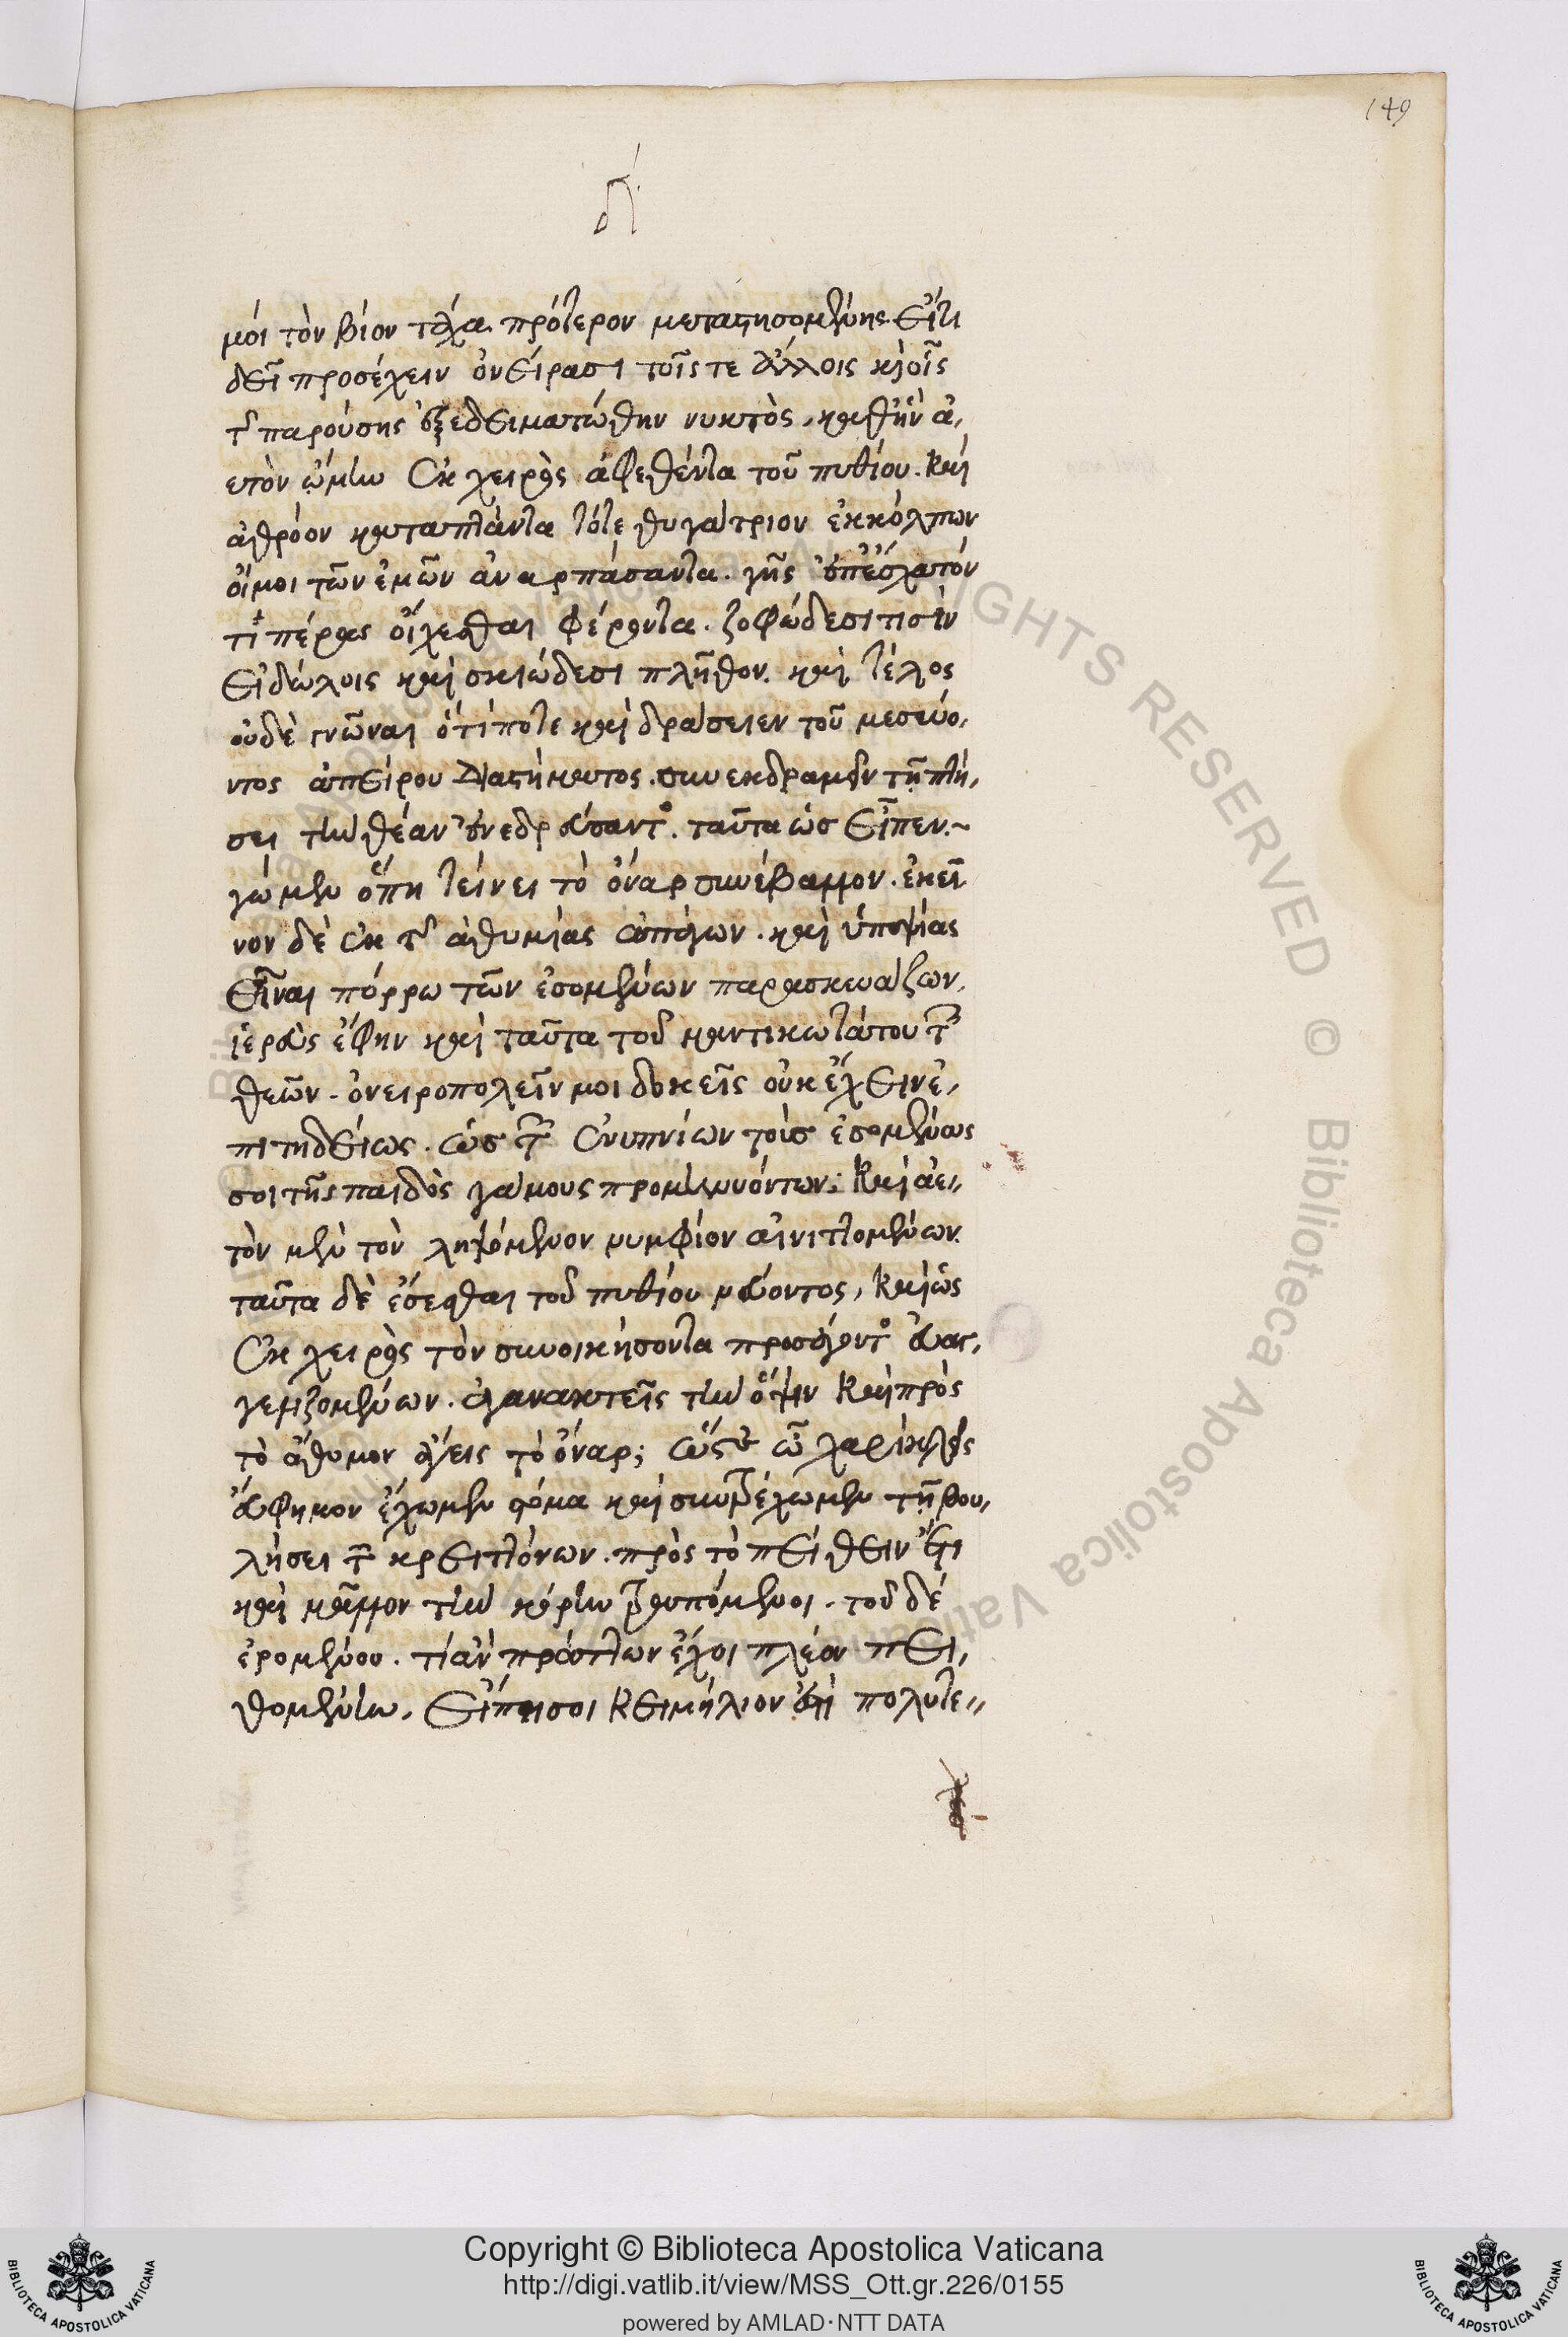 149
μοι τὸν βίον τάχα πρότερον μεταστησομένης. εἴ τι
δεῖ προσέχειν ὀνείρασι τοῖς τε ἄλλοις κ οἷς
τῆς παρούσης ἐξεδειματώθην νυκτὸς, καθ' ἣν ἀ,
ετὸν ᾤμην ἐκ χειρὸς ἀφεθέντα τοῦ πυθίου. καὶ
ἀθρόον καταπτάντα τότε θυγάτριον ἐκ κόλπων
οἴμοι τῶν ἐμῶν ἀναρπάσαντα. γῆς ἐπ' ἔσχατόν
τι πέρας οἴχεσθαι φέροντα. ζοφώδεσι τισὶν
εἰδώλοις καὶ σκιώδεσι πλῆθον. καὶ τέλος
οὐδὲ γνῶναι ὅτί ποτε καὶ δράσειεν τοῦ μεσεύο,
ντος ἀπείρου διαστήματος. συνεκδραμεῖν τῆ πτή,
σει τὴν θέαν ἐνεδρεύσαντος. ταῦτα ὡς εἶπεν.~
γὼ μὲν ὅπη τείνει τὸ ὄναρ συνέβαλλον. ἐκεῖ
νον δὲ ἐκ τῆς ἀθυμίας ἀπάγων. καὶ ὑποψίας
εἶναι πόρρω τῶν ἐσομένων παρασκευάζων,
ἱερεὺς ἔφην καὶ ταῦτα τοῦ μαντικωτάτου τῶν
θεῶν. ὀνειροπολεῖν μοι δοκεῖς οὐκ ἔχειν ἐ,
πιτηδείως. ὡς τῶν ἐνυπνίων τοὺς ἐσομένους
σοι τῆς παιδὸς γάμους προμηνυόντων. καὶ ἀε,,
τὸν μὲν τὸν ληψόμενον νυμφίον αἰνιττομένων.
ταῦτα δὲ ἔσεσθαι τοῦ πυθίου νεύοντος, καὶ ὡς
ἐκ χειρὸς τὸν συνοικήσοντα προσάγοντος εὐας,
γεμιζομένων. ἀγανακτεῖς τὴν ὄψιν καὶ πρὸς
τὸ ἄθυμον ἄγεις τὸ ὄναρ; ὥστε ὦ χαρίκλεις
εὔφημον ἔχωμεν στόμα καὶ συντρέχωμεν τῆ βου,
λήσει τῶν κρειττόνων. πρὸς τὸ πείθειν ἔτι
καὶ μᾶλλον τὴν κόρην τραπόμενοι. τοῦ δέ
ἐρομένου. τί ἂν πράττων ἔχοι πλέον πει,
θομένην, εἴ πη σοι κειμήλιον ἐστὶ πολυτε,,
Copyright © Biblioteca Apostolica Vaticana
http://digi.vatlib.it/view/MSS_Ott.gr.226/0155
powered by AMLAD·NTT DATA